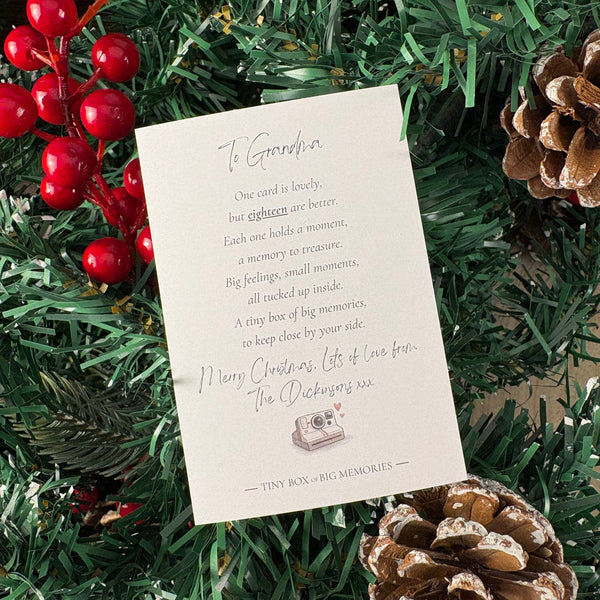 To Grandma
One card is lovely,
but eighteen are better.
Each one holds a moment,
a memory to treasure.
Big feelings, small moments,
all tucked up inside.
A tiny box of big memories,
to keep close by your side.
Merry Christmas, Lots of love from
The Dickinsons xxx
— TINY BOX OF BIG MEMORIES —